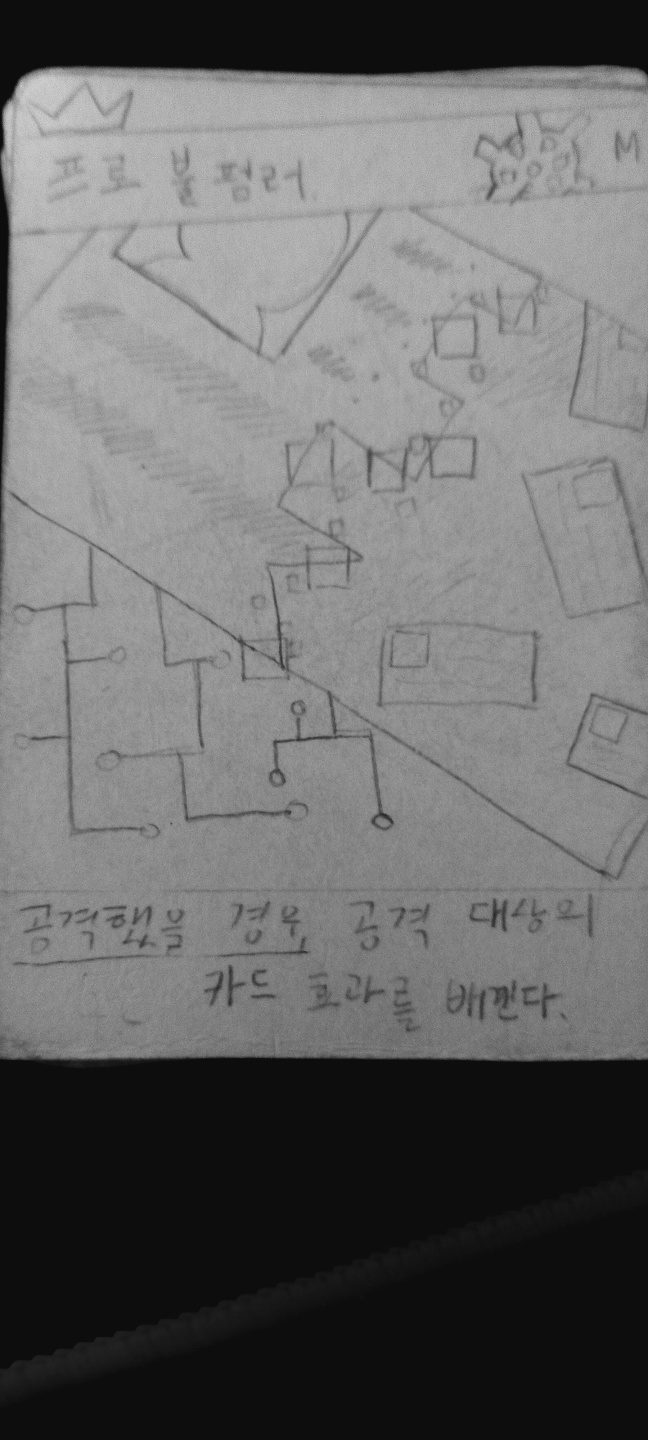 프로 볼 펌러 M
공격했을 경우, 공격 대상의
카드 효과를 베낀다.